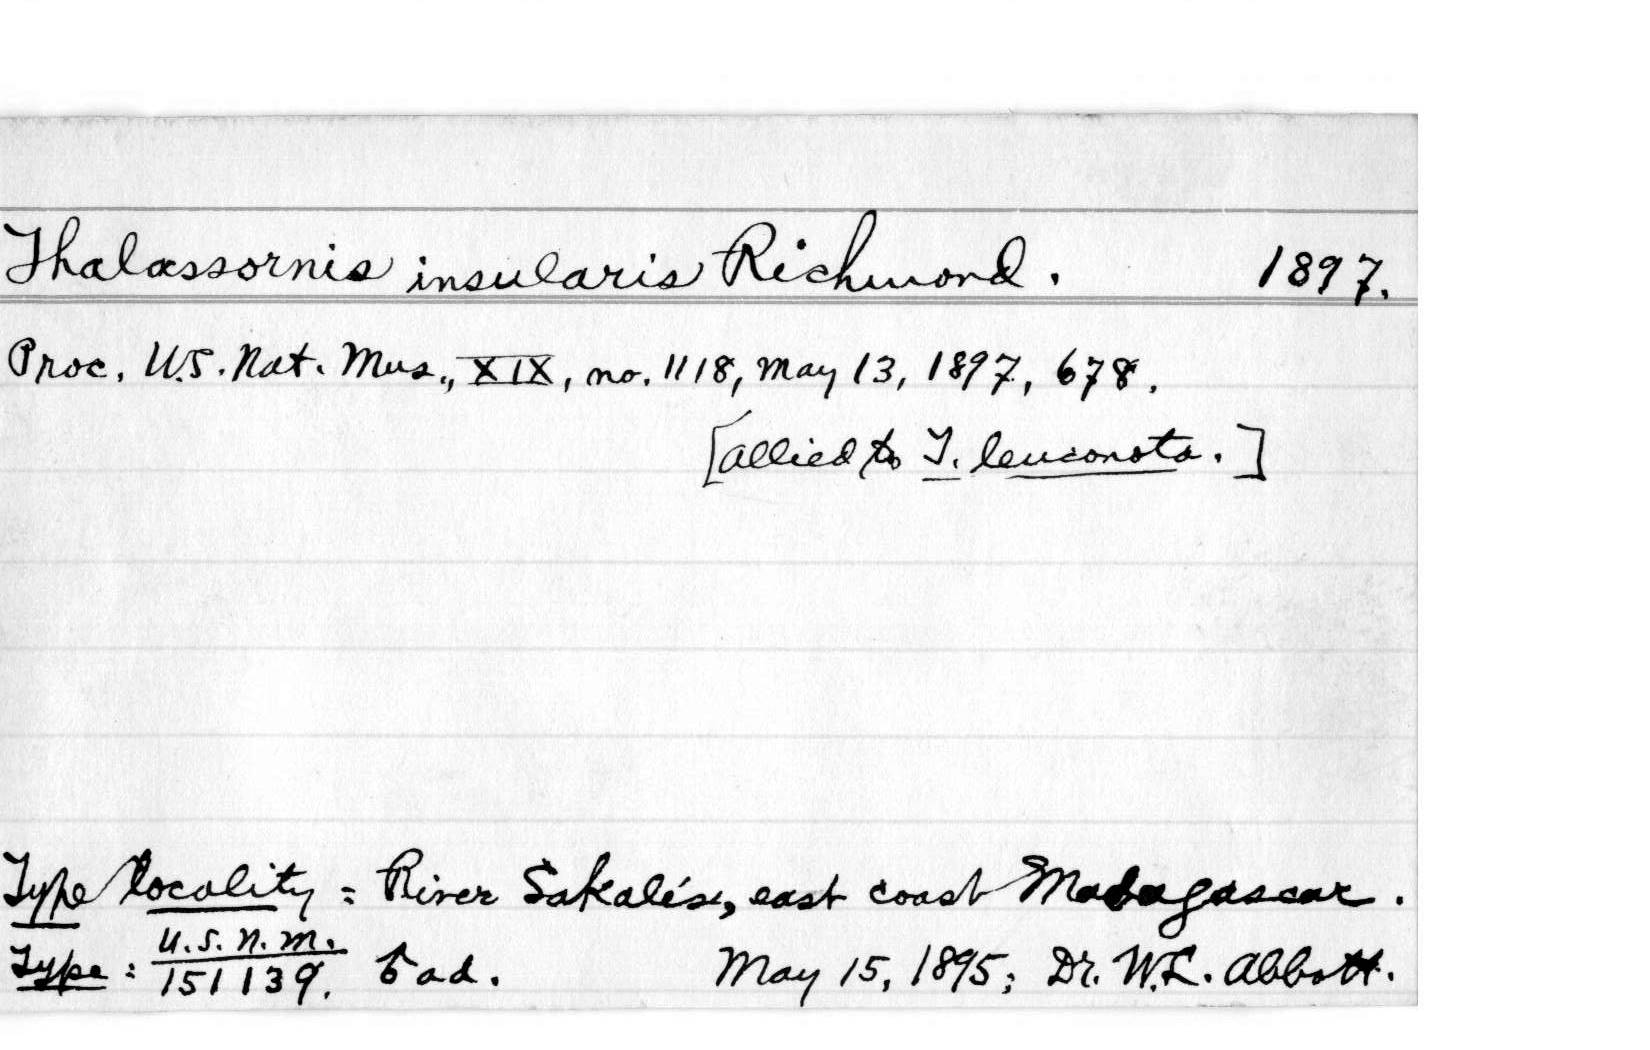 Thalassornis insularis Richmond. 1897.
Proc. U.S. Nat. Mus., XIX, no. 1118, May 13, 1897, 678.
[allied to T. leuconota.]
Type locality = River Sakalés, east coast Madagascar.
Type: U.S.N.M. 151139. ♂ ad. May 15, 1895; Dr. W.L. Abbott.